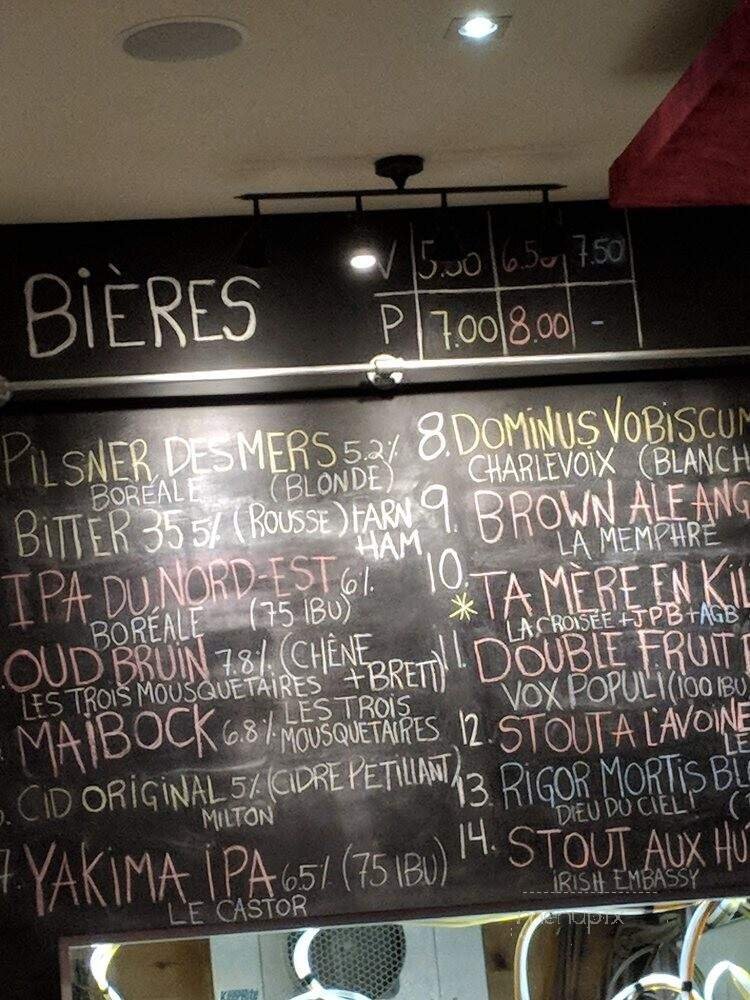 BIÈRES
V 5.50 6.50 7.50
P 7.00 8.00 -
PILSNER DES MERS 5.2%
BORÉALE (BLONDE)
BITTER 35 5% (ROUSSE) FARN
HAM
IPA DU NORD-EST 6%
BORÉALE (75 IBU)
OUD BRUIN 7.8% (CHÊNE
+BRETT)
LES TROIS MOUSQUETAIRES
MAIBOCK 6.8% LES TROIS
MOUSQUETAIRES
CID ORIGINAL 5% (CIDRE PETILLANT)
MILTON
7. YAKIMA IPA 6.5% (75 IBU)
LE CASTOR
8. DOMINUS VOBISCUM
CHARLEVOIX (BLANCH
9. BROWN ALE ANG
LA MEMPHRÉ
10. TA MÈRE EN KI
* LA CROISÉE + JPB + AGB
11. DOUBLE FRUIT
VOX POPULI (100 IBU
12. STOUT A L'AVOINE
LE
13. RIGOR MORTIS BL
DIEU DU CIEL!
14. STOUT AUX HU
IRISH EMBASSY
menupix